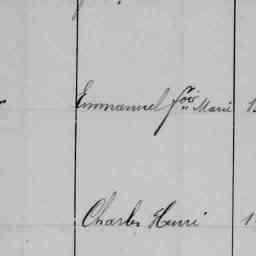 Emmanuel fois Marie
Charles Henri